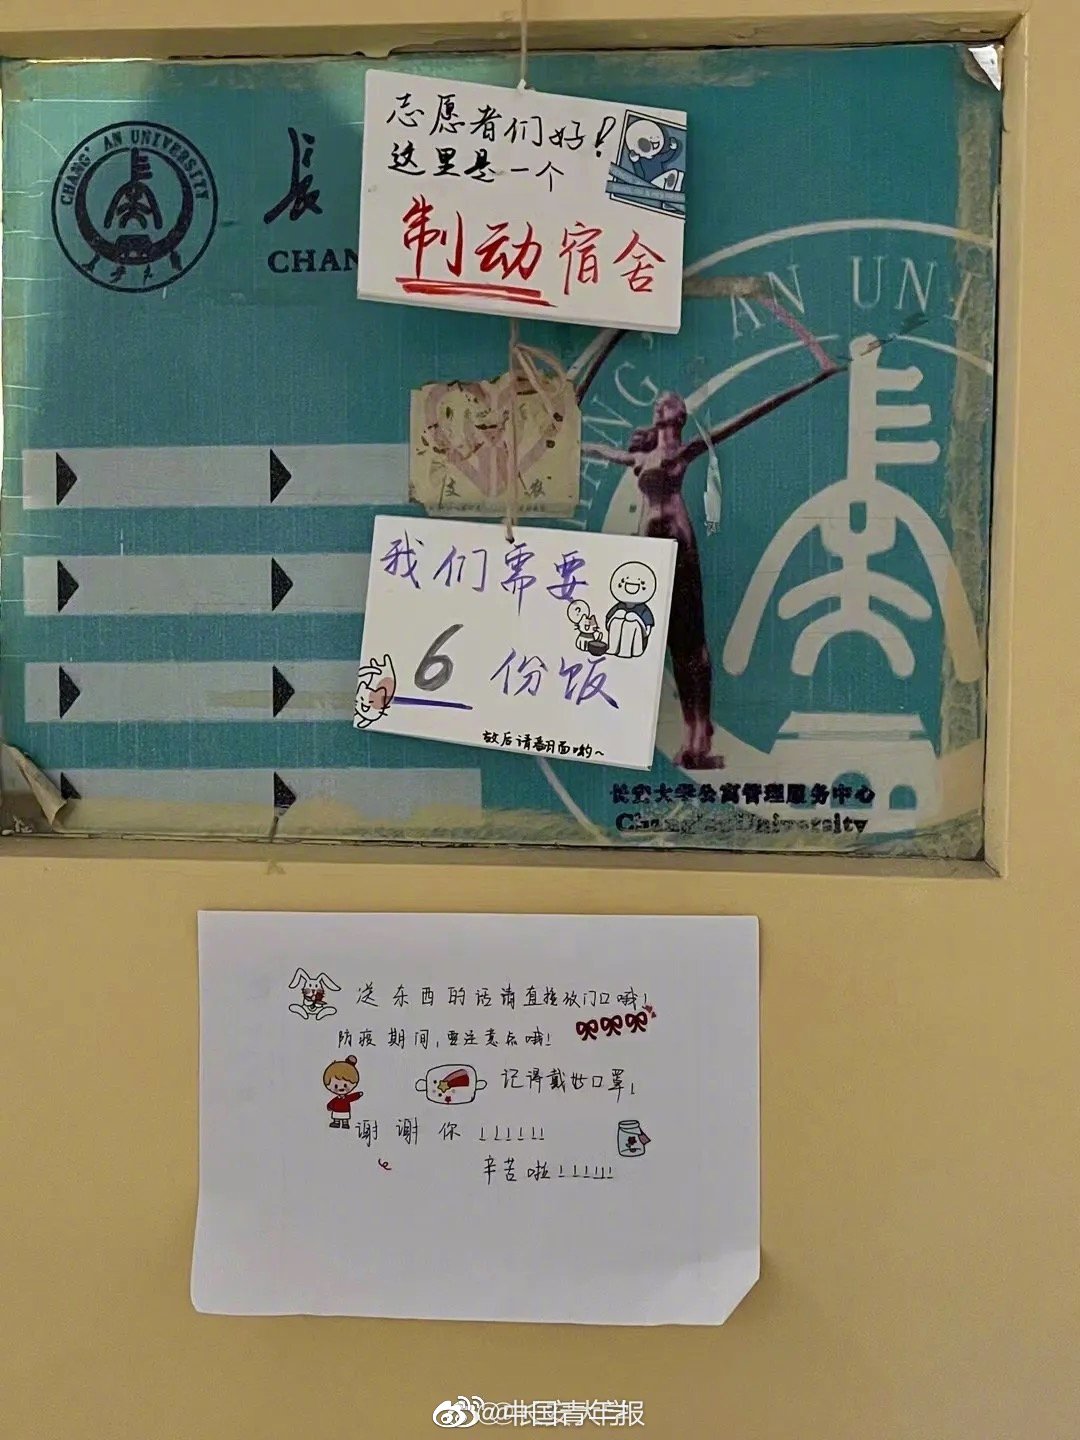 志愿者们好!
这里是一个
制动宿舍
CHANG' AN UNIVERSITY
长安大学
长
CHAN
ANG' AN UNI
我们需要
6 份饭
放后请翻面哟~
长安大学公寓管理服务中心
Chang'an University
送东西的话请直接放门口哦!
防疫期间,要注意点哦!
记得戴好口罩!
谢谢你!!!!!!
辛苦啦!!!!!!